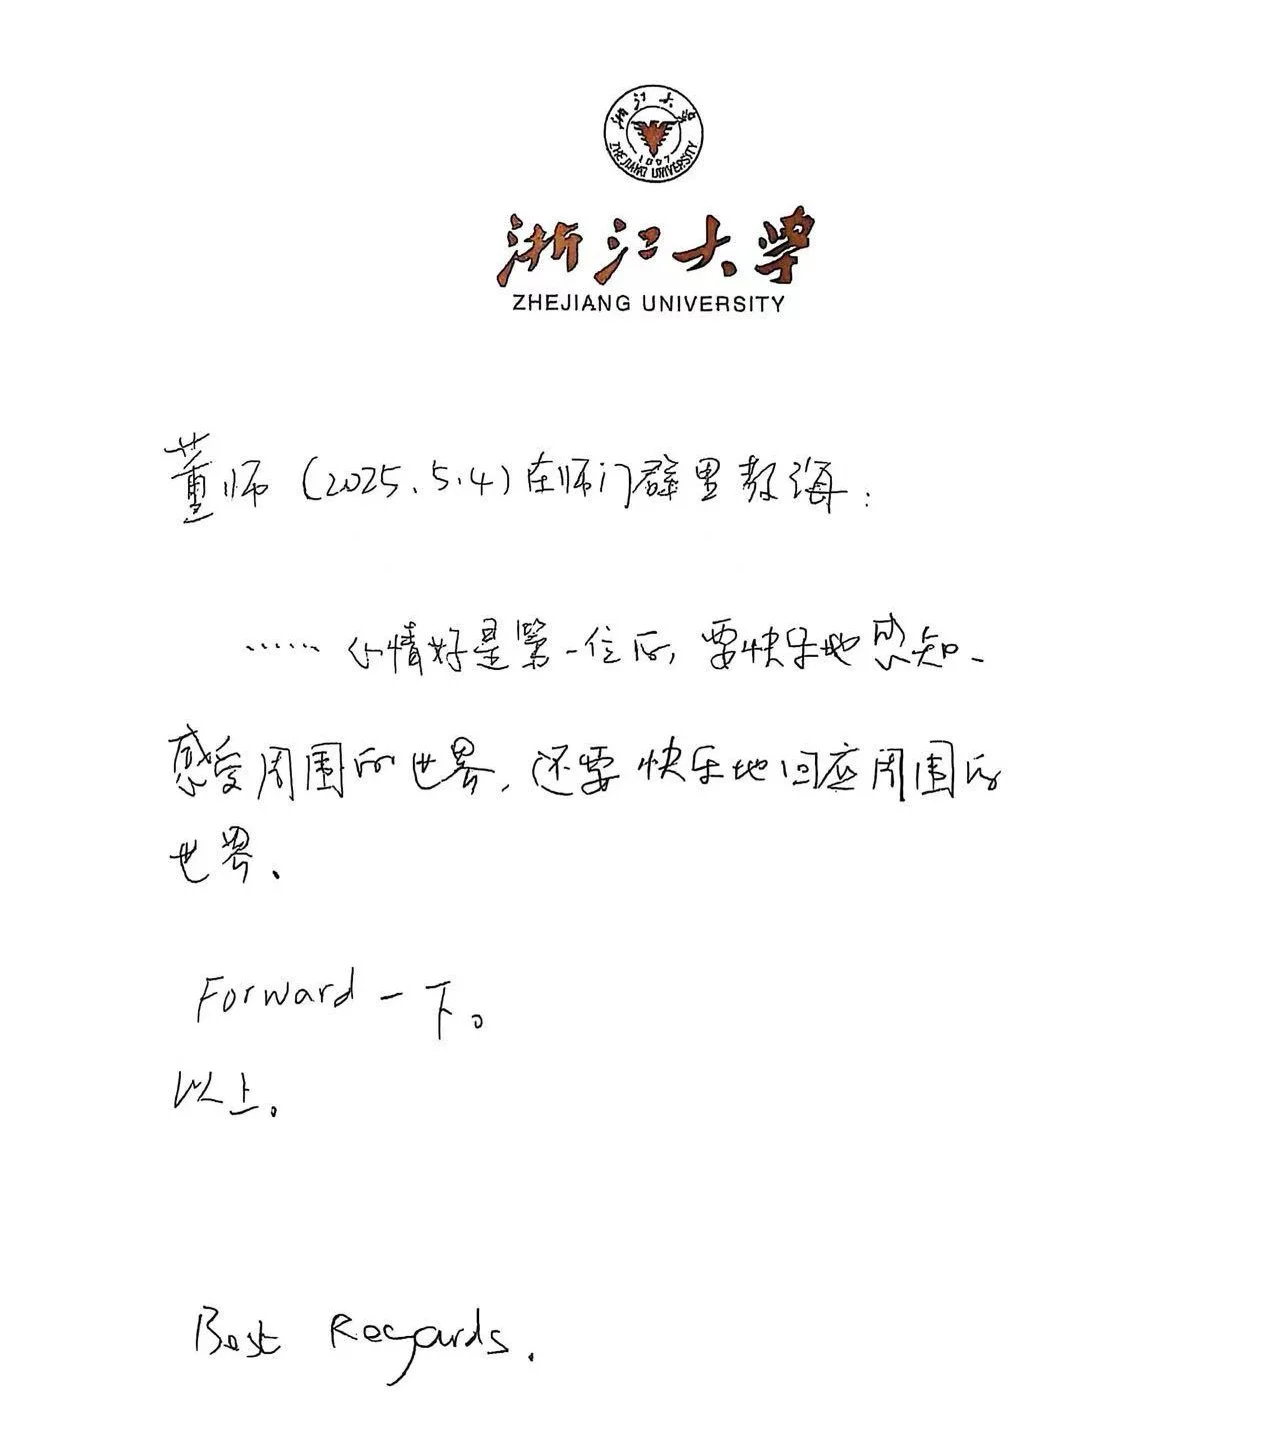 浙江大学
ZHEJIANG UNIVERSITY
1897
浙江大学
ZHEJIANG UNIVERSITY
董师（2025.5.4）在师门群里教诲：
……心情好是第一位的，要快乐地感知、
感受周围的世界，还要快乐地回应周围的
世界.
Forward一下。
以上。
Best Regards.